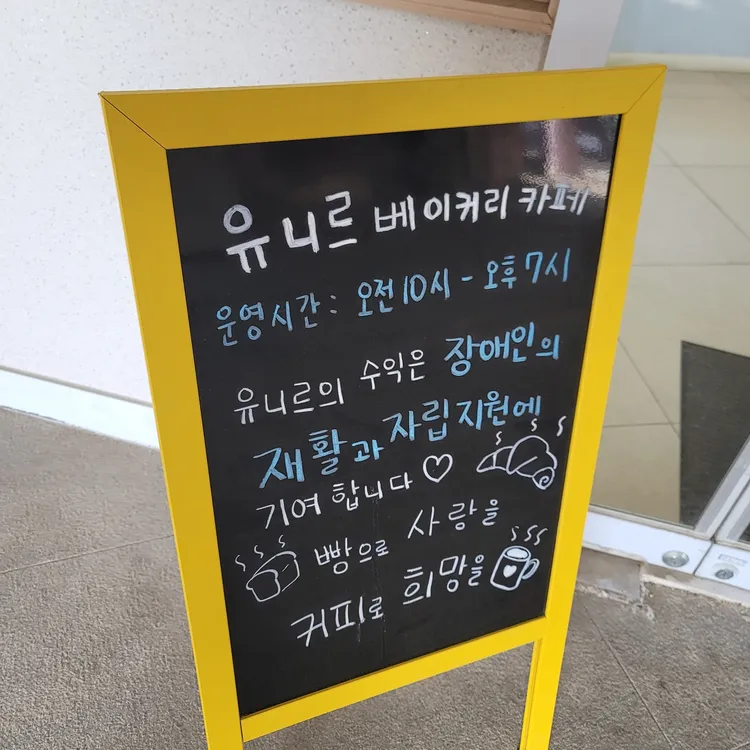 유니르 베이커리 카페
운영시간: 오전 10시 - 오후 7시
유니르의 수익은 장애인의
재활과 자립지원에
기여합니다 ♡
빵으로 사랑을
커피로 희망을